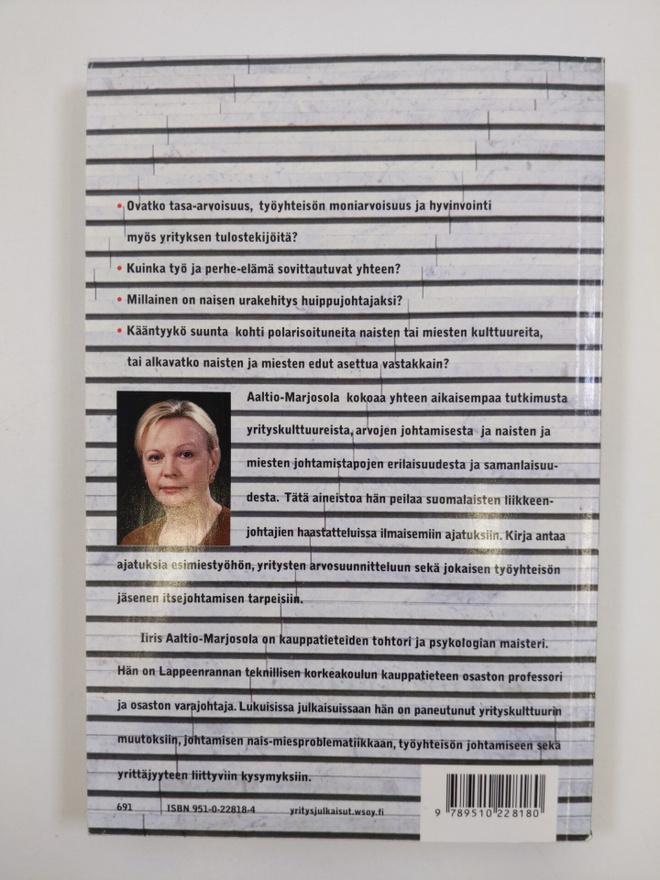 • Ovatko tasa-arvoisuus, työyhteisön moniarvoisuus ja hyvinvointi
myös yrityksen tulostekijöitä?
• Kuinka työ ja perhe-elämä sovittautuvat yhteen?
• Millainen on naisen urakehitys huippujohtajaksi?
• Kääntyykö suunta kohti polarisoituneita naisten tai miesten kulttuureita,
tai alkavatko naisten ja miesten edut asettua vastakkain?
Aaltio-Marjosola kokoaa yhteen aikaisempaa tutkimusta
yrityskulttuureista, arvojen johtamisesta ja naisten ja
miesten johtamistapojen erilaisuudesta ja samanlaisuu-
desta. Tätä aineistoa hän peilaa suomalaisten liikkeen-
johtajien haastatteluissa ilmaisemiin ajatuksiin. Kirja antaa
ajatuksia esimiestyöhön, yritysten arvosuunnitteluun sekä jokaisen työyhteisön
jäsenen itsejohtamisen tarpeisiin.
Iiris Aaltio-Marjosola on kauppatieteiden tohtori ja psykologian maisteri.
Hän on Lappeenrannan teknillisen korkeakoulun kauppatieteen osaston professori
ja osaston varajohtaja. Lukuisissa julkaisuissaan hän on paneutunut yrityskulttuurin
muutoksiin, johtamisen nais-miesproblematiikkaan, työyhteisön johtamiseen sekä
yrittäjyyteen liittyviin kysymyksiin.
691 ISBN 951-0-22818-4 yritysjulkaisut.wsoy.fi
9 789510 228180